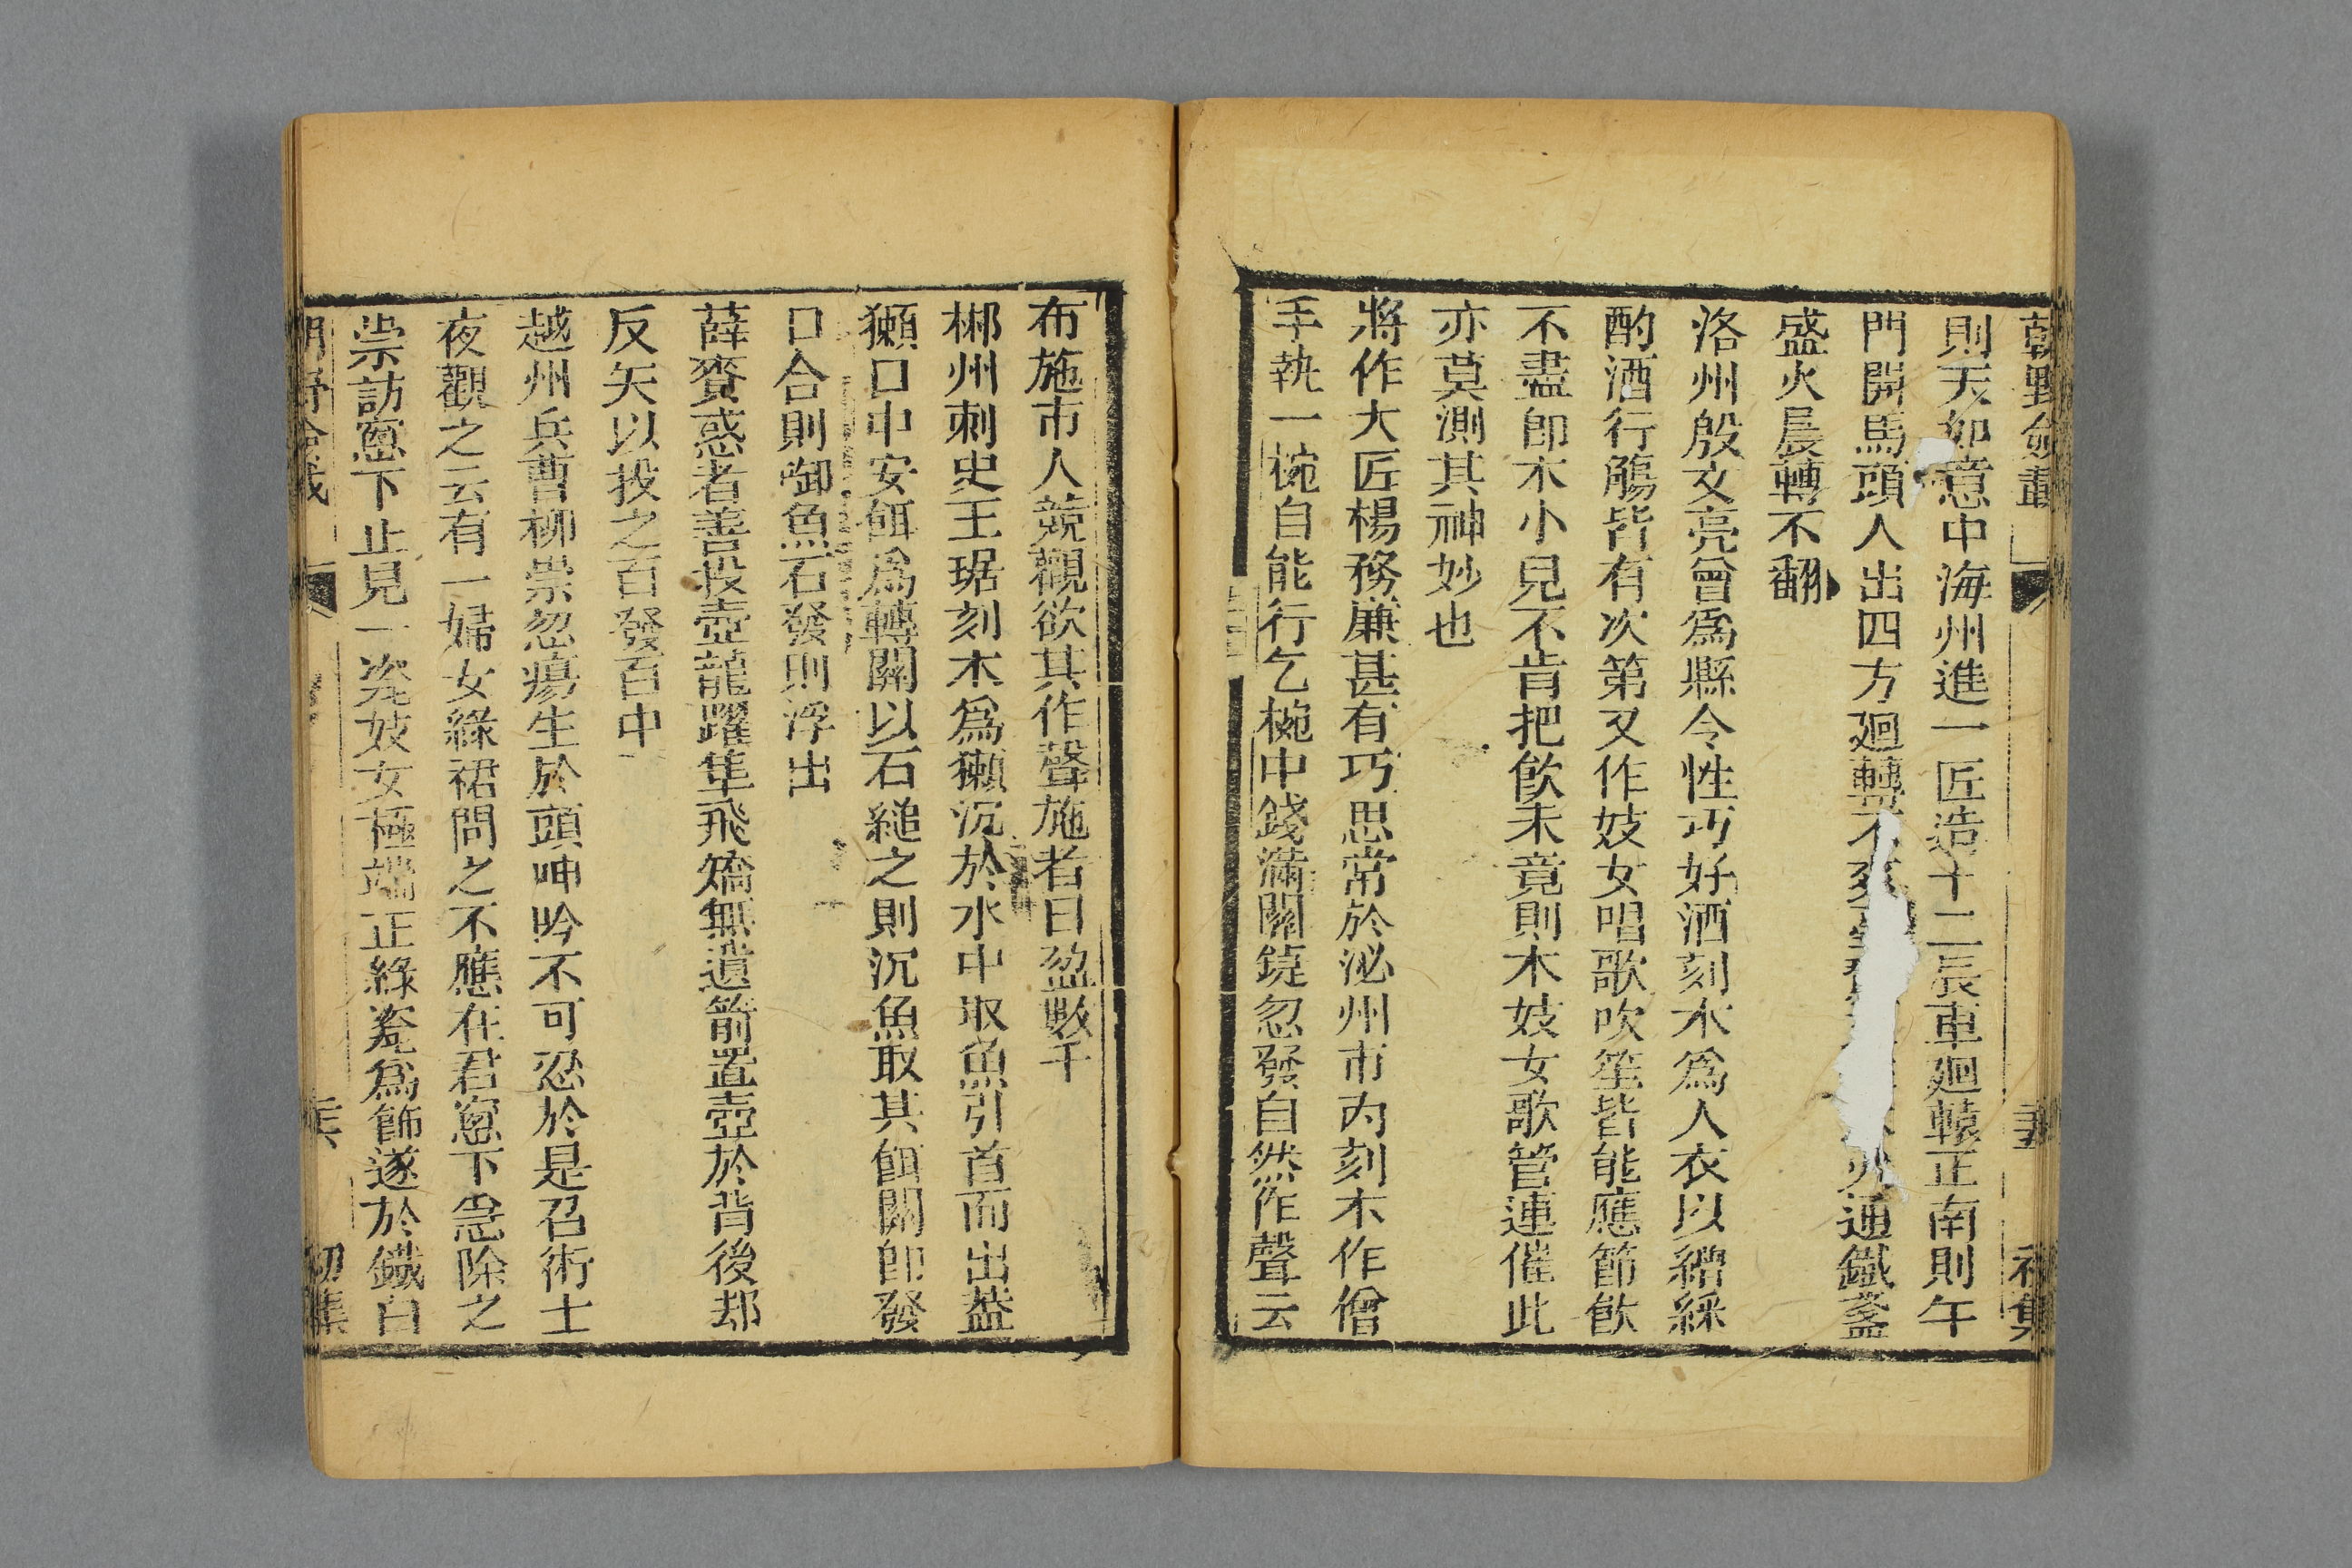 朝野僉載
則天如意中海州進一匠造十二辰車廻轅正南則午
門開馬頭人出四方廻轉不爽 通鐵盞
盛火晨轉不翻
洛州殷文亮曾爲縣令性巧好酒刻木爲人衣以繒綵
酌酒行觴皆有次第又作妓女唱歌吹笙皆能應節飲
不盡卽木小兒不肯把飲未竟則木妓女歌管連催此
亦莫測其神妙也
將作大匠楊務廉甚有巧思常於泌州市內刻木作僧
手執一椀自能行乞椀中錢滿關鍵忽發自然作聲云
布施市人競觀欲其作聲施者日盈數千
郴州刺史王琚刻木爲獺沉於水中取魚引首而出葢
獺口中安餌爲轉關以石縋之則沉魚取其餌關卽發
口合則啣魚石發則浮出
薛賚惑者善投壺龍躍隼飛矯無遺箭置壺於背後却
反矢以投之百發百中
越州兵曹柳崇忽瘍生於頭呻吟不可忍於是召術士
夜觀之云有一婦女綠裙問之不應在君窻下急除之
崇訪窻下止見一瓷妓女極端正綠瓷爲飾遂於鐵臼
朝野僉載 初集